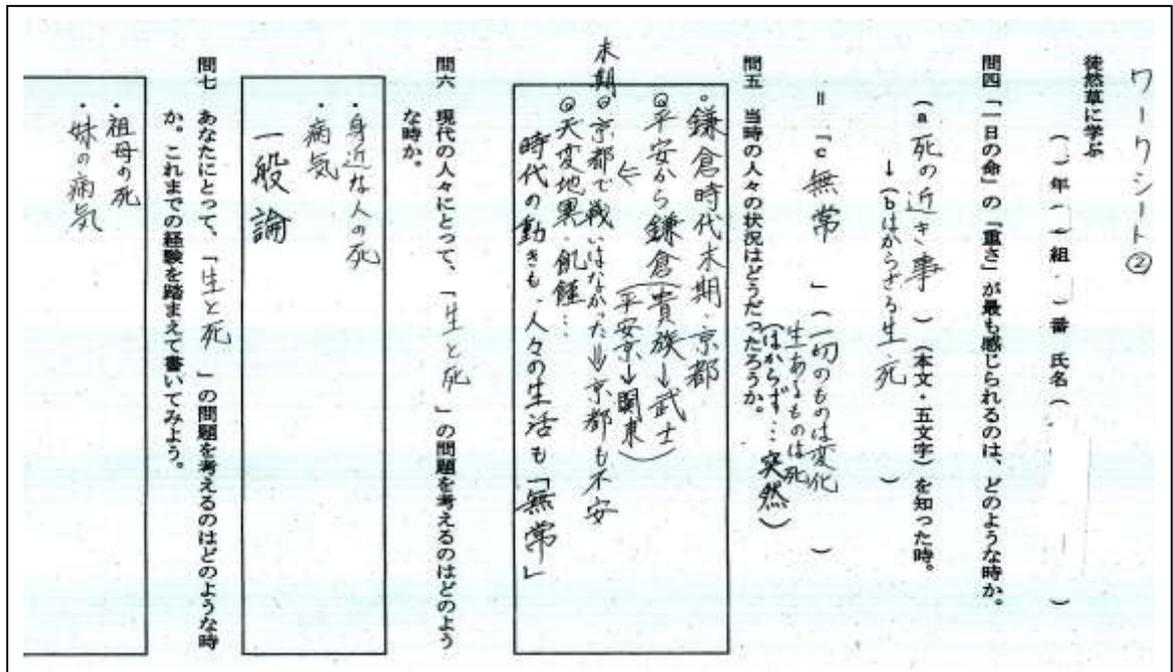 ワークシート②
徒然草に学ぶ
（ 一年 一組 ）番 氏名（ ）
問四「一日の命」の「重さ」が最も感じられるのは、どのような時か。
（a 死の近き事 ）（本文・五文字）を知った時。
↓（bはからざる生・死 ）
＝「c 無常 」（一切のものは変化 ）
生あるものは死
（はからず…突然）
問五 当時の人々の状況はどうだったろうか。
・鎌倉時代末期・京都
◎平安から鎌倉（貴族→武士）
（平安京→関東）
末期◎京都で戦いはなかった⇒京都も不安
◎天変地異・飢饉…
時代の動きも、人々の生活も「無常」
問六 現代の人々にとって、「生と死 」の問題を考えるのはどのよう
な時か。
・身近な人の死
・病気
一般論
問七 あなたにとって、「生と死 」の問題を考えるのはどのような時
か。これまでの経験を踏まえて書いてみよう。
・祖母の死
・妹の病気